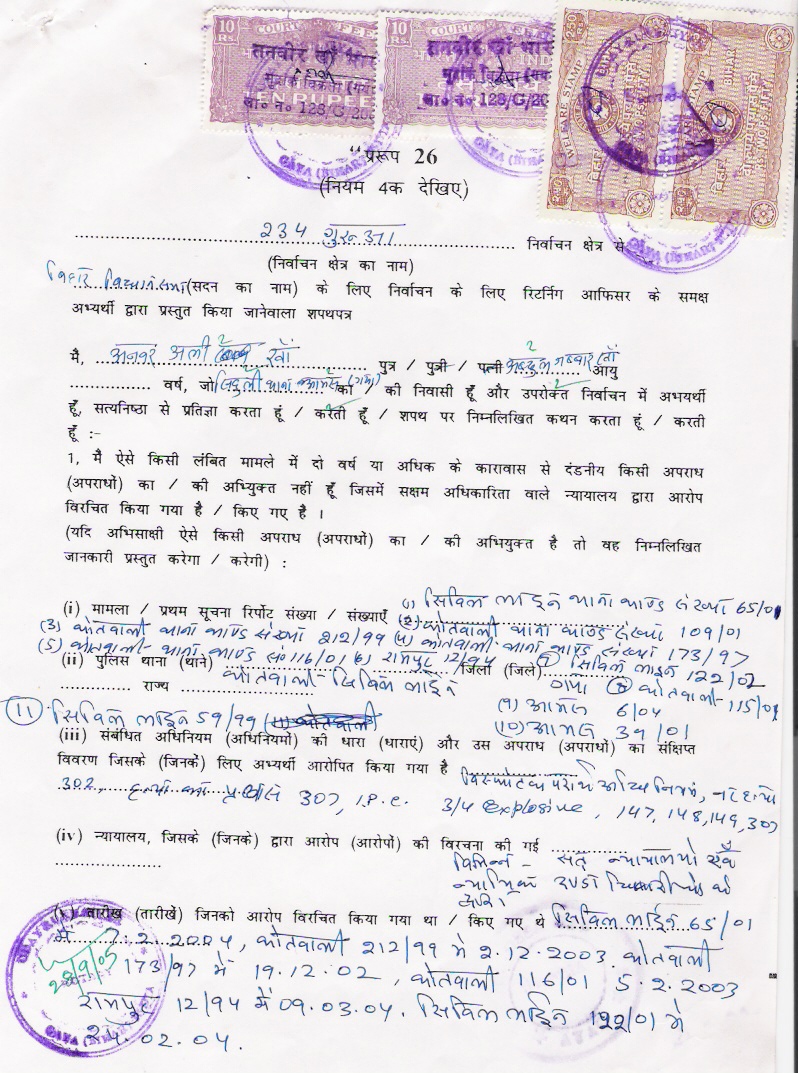 10 Rs. COURT FEE
10 Rs. COURT FEE
2.50 WELFARE STAMP BIHAR
तनवीर खाँ
मुद्रांक विक्रेता
ला० न० 128/G/20
तनवीर खाँ
ला० न० 128/G/20
GAYA (BIHAR)
"प्ररूप 26
(नियम 4क देखिए)
234 गुरूआ निर्वाचन क्षेत्र से
(निर्वाचन क्षेत्र का नाम)
बिहार विधान सभा (सदन का नाम) के लिए निर्वाचन के लिए रिटर्निग आफिसर के समक्ष
अभ्यर्थी द्वारा प्रस्तुत किया जानेवाला शपथपत्र
मै, अनवर अली खाँ पुत्र / पुत्री / पत्नी अब्दुल जब्बार खाँ आयु
वर्ष, जो थाना आमस (गया) का / की निवासी हूँ और उपरोक्त निर्वाचन में अभयर्थी
हूँ, सत्यनिष्ठा से प्रतिज्ञा करता हूं / करती हूँ / शपथ पर निम्नलिखित कथन करता हूं / करती
हूँ :-
1, मै ऐसे किसी लंबित मामले में दो वर्ष या अधिक के कारावास से दंडनीय किसी अपराध
(अपराधों) का / की अभ्युिक्त नहीं हूँ जिसमें सक्षम अधिकारिता वाले न्यायालय द्वारा आरोप
विरचित किया गया है / किए गए है ।
(यदि अभिसाक्षी ऐसे किसी अपराध (अपराधों) का / की अभियुक्त है तो वह निम्नलिखित
जानकारी प्रस्तुत करेगा / करेगी) :
(i) मामला / प्रथम सूचना रिर्पोट संख्या / संख्याएँ (1) सिविल लाईन थाना काण्ड संख्या 65/01
(2) कोतवाली थाना काण्ड संख्या 109/01
(3) कोतवाली थाना काण्ड संख्या 212/99 (4) कोतवाली थाना काण्ड संख्या 173/97
(5) कोतवाली थाना काण्ड सं० 116/01 (6) रामपुर 12/94 (7) सिविल लाईन 122/02
(ii) पुलिस थाना (थाने) कोतवाली सिविल लाईन जिला (जिले) गया (8) कोतवाली 115/01
राज्य (9) आमस 6/04
(10) आमस 39/01
(11) सिविल लाईन 59/99
(iii) संबंधित अधिनियम (अधिनियमों) की धारा (धाराएं) और उस अपराध (अपराधों) का संक्षिप्त
विवरण जिसके (जिनके) लिए अभ्यर्थी आरोपित किया गया है विस्फोटक अधिनियम,
302, हत्या का प्रयास 307, I.P.C. 3/4 explosive, 147, 148, 149, 307
(iv) न्यायालय, जिसके (जिनके) द्वारा आरोप (आरोपों) की विरचना की गई
विभिन्न - न्यायालयों एवं
न्यायिक के
द्वारा
(v) तारीख (तारीखें) जिनको आरोप विरचित किया गया था / किए गए थे सिविल लाईन 65/01
में 7.2.2004, कोतवाली 212/99 में 2.12.2003 कोतवाली
173/97 में 19.12.02, कोतवाली 116/01 5.2.2003
रामपुर 12/94 में 09.03.04. सिविल लाईन 122/01 में
24.02.04.